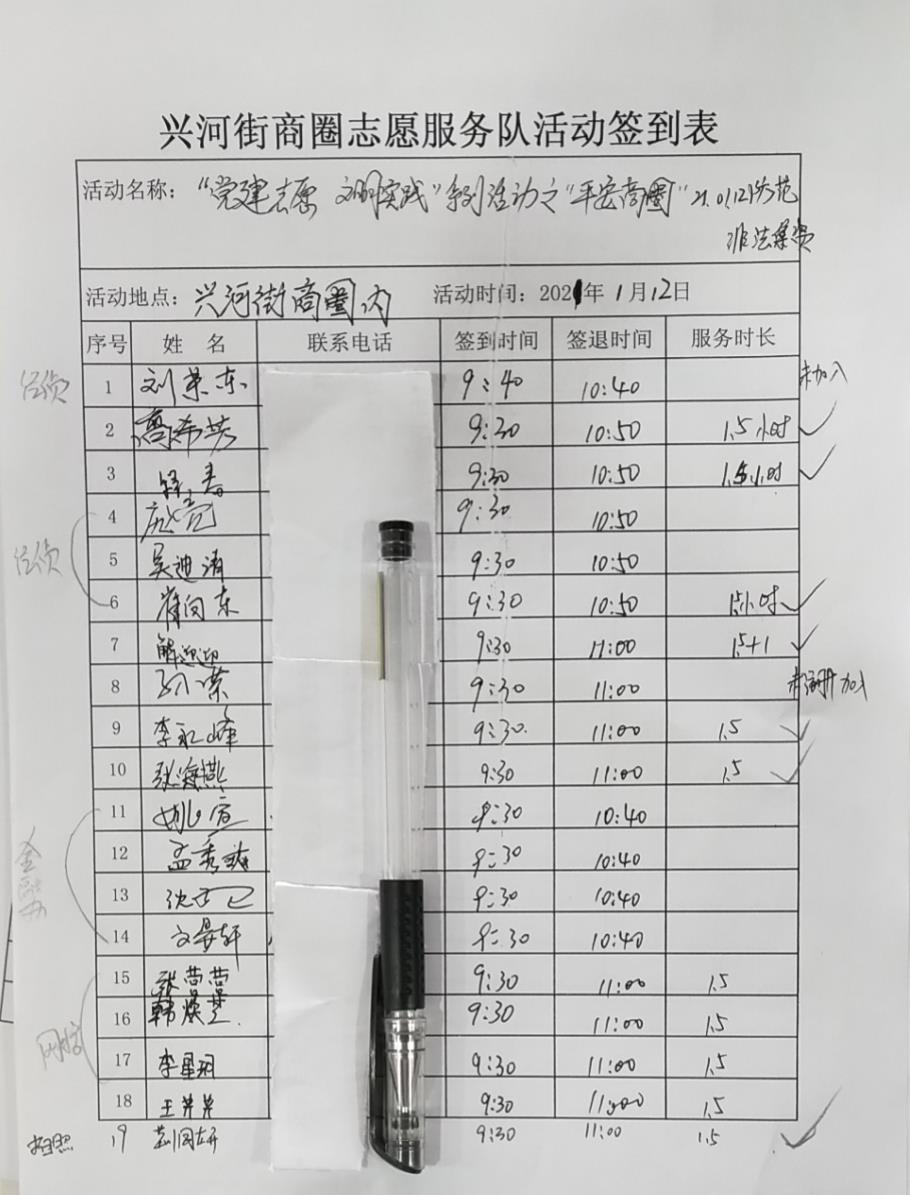 兴河街商圈志愿服务队活动签到表
活动名称：“党建志愿 文明实践”系列活动之“平安商圈”21.01.12防范
非法集资
活动地点：兴河街商圈内 活动时间：2021年1月12日
序号 姓 名 联系电话 签到时间 签退时间 服务时长
1 刘荣东 9:40 10:40 未加入
2 高希芳 9:30 10:50 1.5小时
3 9:30 10:50 1.5小时
4 庞亮 9:30 10:50
5 吴迪清 9:30 10:50
6 崔向东 9:30 10:50 1.5小时
7 解迎迎 9:30 11:00 1.5+1
8 9:30 11:00
9 李永峰 9:30. 11:00 1.5
10 张海燕 9:30 11:00 1.5
11 9:30 10:40
12 孟秀 9:30 10:40
13 沈 9:30 10:40
14 文晏轩 9:30 10:40
金融办
15 张营营 9:30 11:00 1.5
16 韩焕芝 9:30 11:00 1.5
网格
17 李星羽 9:30 11:00 1.5
18 王芹芹 9:30 11:00 1.5
拍照 19 9:30 11:00 1.5